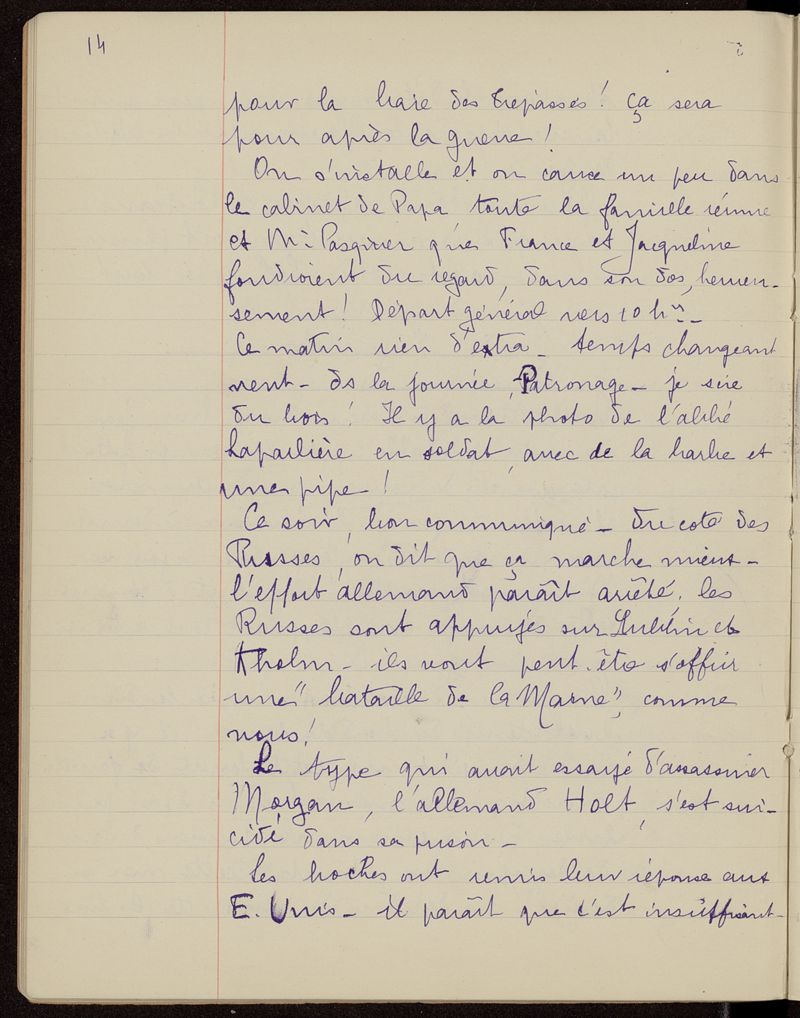 14
pour la baie des trépassés ! ça sera
pour après la guerre !
On s'installe et on cause un peu dans
le cabinet de Papa, toute la famille réunie
et Mr Pasquier que France et Jacqueline
foudroient du regard, dans son dos, heureu-
sement ! Départ général vers 10 h
Ce matin rien d'extra - temps changeant
vent - ds la journée, Patronage - je scie
du bois ! Il y a la photo de l'abbé
Lapailière en soldat, avec de la barbe et
une pipe !
Ce soir, bon communiqué - du coté des
Russes, on dit que ça marche mieux -
l'effort allemand paraît arrêté. les
Russes sont appuyés sur Lublin et
Kholm - ils vont peut-être s'offrir
une "bataille de la Marne", comme
nous !
Le type qui avait essayé d'assassiner
Morgan, l'allemand Holt, s'est sui-
cidé dans sa prison -
Les boches ont remis leur réponse aux
E. Unis - il paraît que c'est insuffisant -